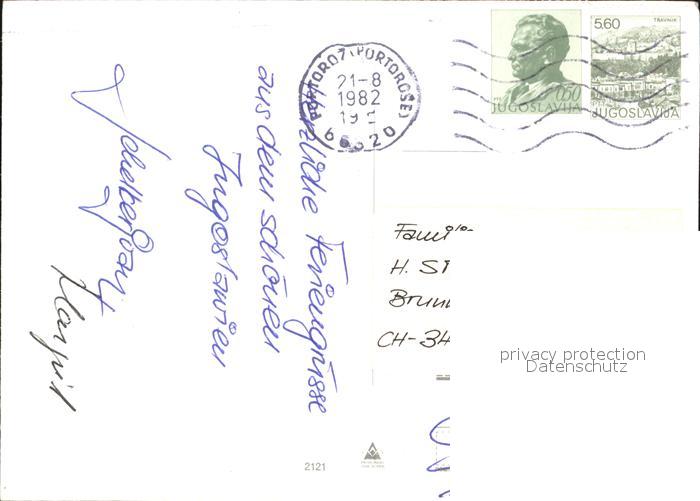 Herzliche Feriengrüsse
aus dem schönen
Jugoslawien
PORTOROŽ (PORTOROSE)
21-8
1982
66320
0,50
JUGOSLAVIJA
5,60
TRAVNIK
JUGOSLAVIJA
Famil
H. S
Brun
CH-34
privacy protection
Datenschutz
2121